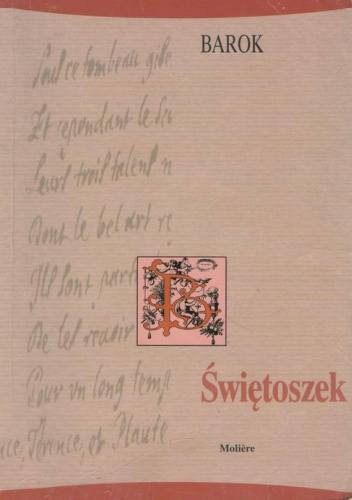 BAROK
Soul ce tombeau gise
Et cependant le seu
Leurs trois talens n
Dont le bel art re
Ils sont parti
De les revoir
Pour un long temp
nce, Térence, et Plaute
B
Świętoszek
Molière